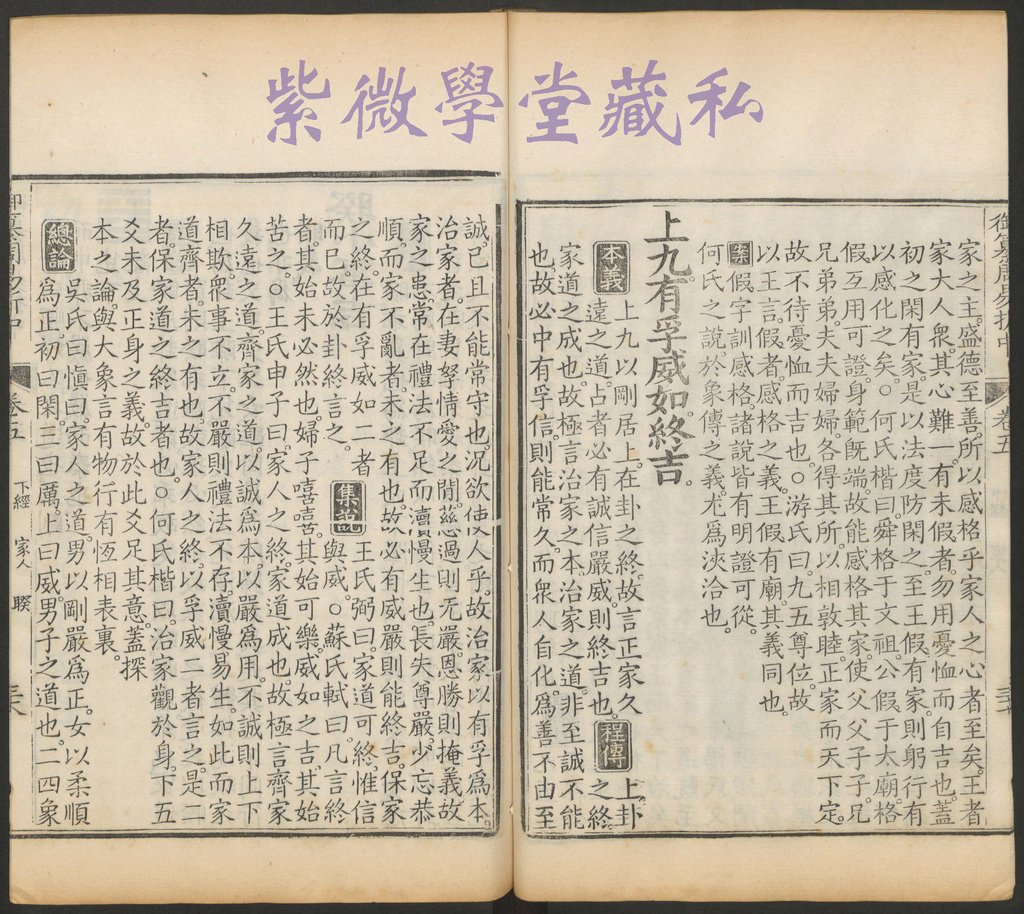 紫微學堂藏私
御纂周易折中
卷五
家之主。盛德至善。所以感格乎家人之心者至矣。王者
家大人衆。其心難一。有未假者。勿用憂恤而自吉也。蓋
初之閑有家。是以法度防閑之。至王假有家。則躬行有
以感化之矣。○何氏楷曰。舜格于文祖。公假于太廟。格
假互用可證。身範既端。故能感格其家。使父父子子兄
兄弟弟夫夫婦婦。各得其所以相敦睦。正家而天下定。
故不待憂恤而吉也。○游氏曰。九五尊位。故
以王言。假者感格之義。王假有廟。其義同也。
案 假字訓感格。諸說皆有明證可從。
何氏之說。於象傳之義。尤爲浹洽也。
上九。有孚威如。終吉。
本義 上九以剛居上。在卦之終。故言正家久
遠之道。占者必有誠信嚴威。則終吉也。
程傳 上。卦
之終。
家道之成也。故極言治家之本。治家之道。非至誠不能
也。故必中有孚信。則能常久。而衆人自化。爲善不由至
誠。已且不能常守也。況欲使人乎。故治家以有孚爲本。
治家者。在妻孥情愛之間。慈過則无嚴。恩勝則掩義。故
家之患。常在禮法不足而瀆慢生也。長失尊嚴。少忘恭
順。而家不亂者。未之有也。故必有威嚴則能終吉。保家
之終。在有孚威如二者
而已。故於卦終言之。
集說 王氏弼曰。家道可終。惟信
與威。○蘇氏軾曰。凡言終
者。其始未必然也。婦子嘻嘻。其始可樂。威如之吉。其始
苦之。○王氏申子曰。家人之終。家道成也。故極言齊家
久遠之道。齊家之道。以誠爲本。以嚴爲用。不誠則上下
相欺。衆事不立。不嚴則禮法不存。瀆慢易生。如此而家
道齊者。未之有也。故家人之終。以孚威二者言之。是二
者。保家道之終吉者也。○何氏楷曰。治家觀於身。下五
爻未及正身之義。故於此爻足其意。蓋探
本之論。與大象言有物行有恆相表裏。
總論 吳氏曰愼曰。家人之道。男以剛嚴爲正。女以柔順
爲正。初曰閑。三曰厲。上曰威。男子之道也。二四象
卷五
下經 家人 睽